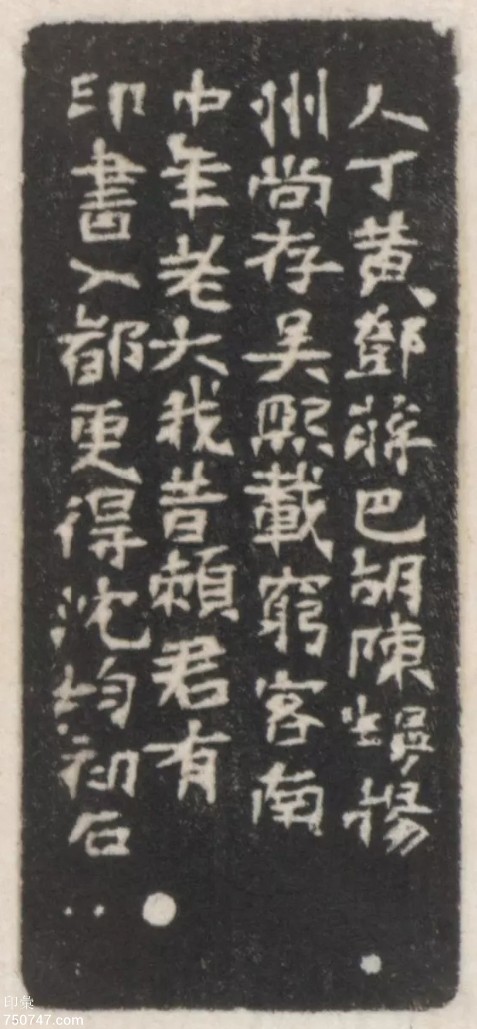 人丁黃鄧蔣巴胡陳揚
州尚存吳熙載窮客南
中年老大我昔賴君有
印書入都更得沈均初石
印彙
750747.com